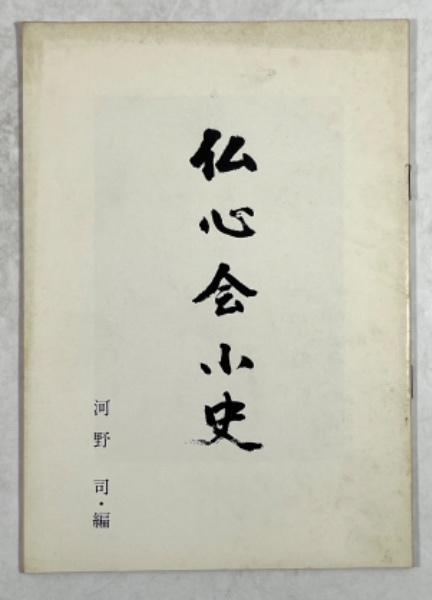 仏心会小史
河野司・編